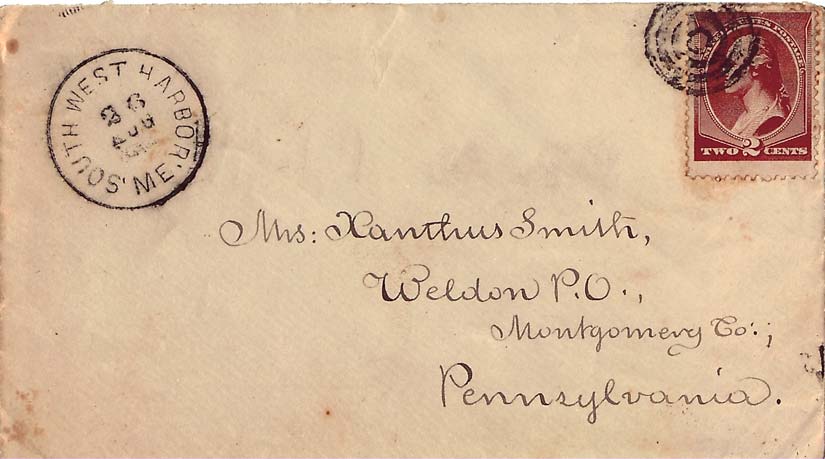 SOUTH WEST HARBOR. ME.
UNITED STATES POSTAGE
TWO 2 CENTS
Mrs: Xanthus Smith,
Weldon P.O.,
Montgomery Co:,
Pennsylvania.